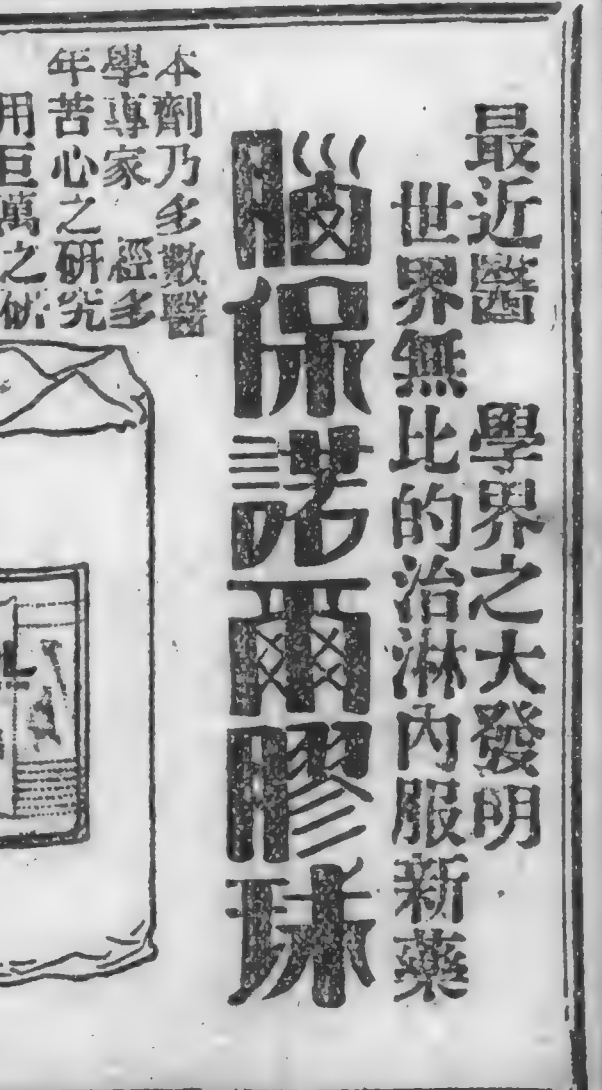 最近醫 學界之大發明
世界無比的治淋內服新藥
腦保諾爾膠球
本劑乃多數醫
學專家 經多
年苦心之研究
用巨萬之研